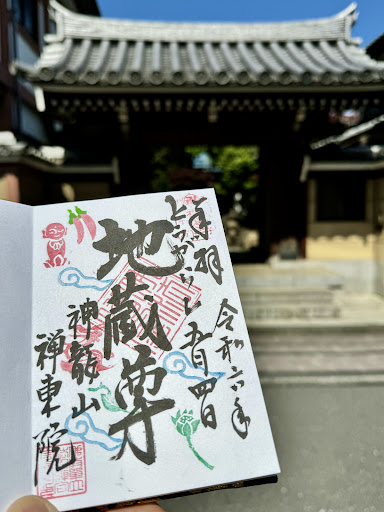 奉拝
令和六年
五月四日
とうがらし
地蔵尊
神龍山
禅東院